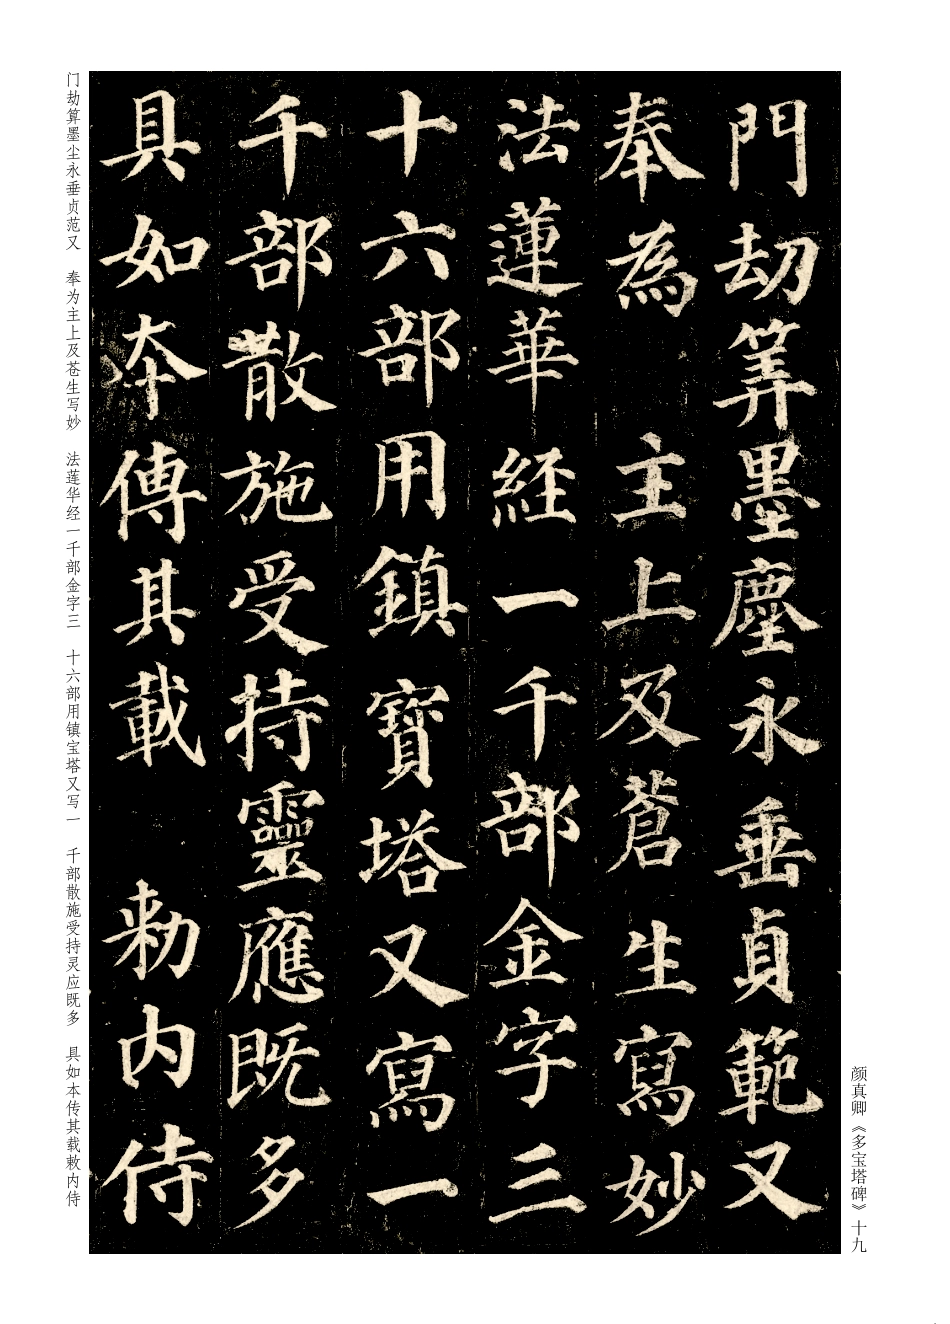 颜真卿《多宝塔碑》十九
門劫筭墨塵永垂貞範又
奉為 主上及蒼生寫妙
法蓮華経一千部金字三
十六部用鎮寶塔又寫一
千部散施受持靈應既多
具如夲傳其載 勑内侍
门劫算墨尘永垂贞范又 奉为主上及苍生写妙 法莲华经一千部金字三 十六部用镇宝塔又写一 千部散施受持灵应既多 具如本传其载敕内侍